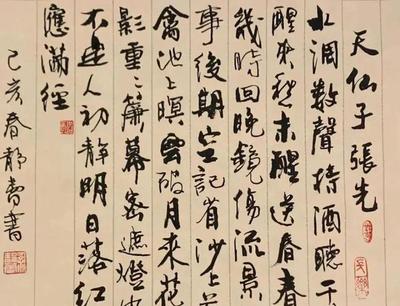 天仙子 張先
水調數聲持酒聽午
醒來愁未醒送春春
幾時回晚鏡傷流景
事後期空記省沙上
禽池上暝雲破月來花
影重〻簾幕密遮燈
不定人初靜明日落紅
應滿徑
己亥春靜書